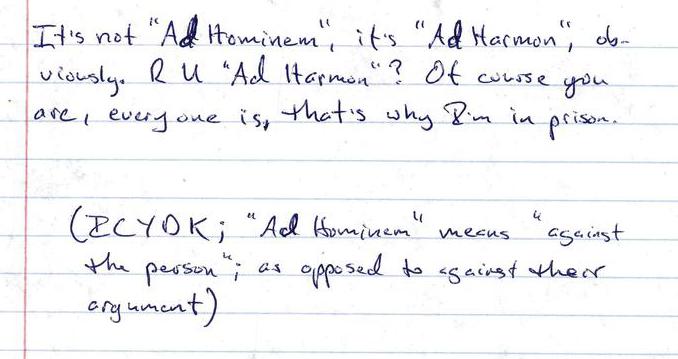 It's not "Ad Hominem", it's "Ad Harmon", ob-
viously. R U "Ad Harmon"? Of course you
are, everyone is, that's why I'm in prison.
(ICYDK; "Ad Hominem" means "against
the person"; as opposed to against their
argument)